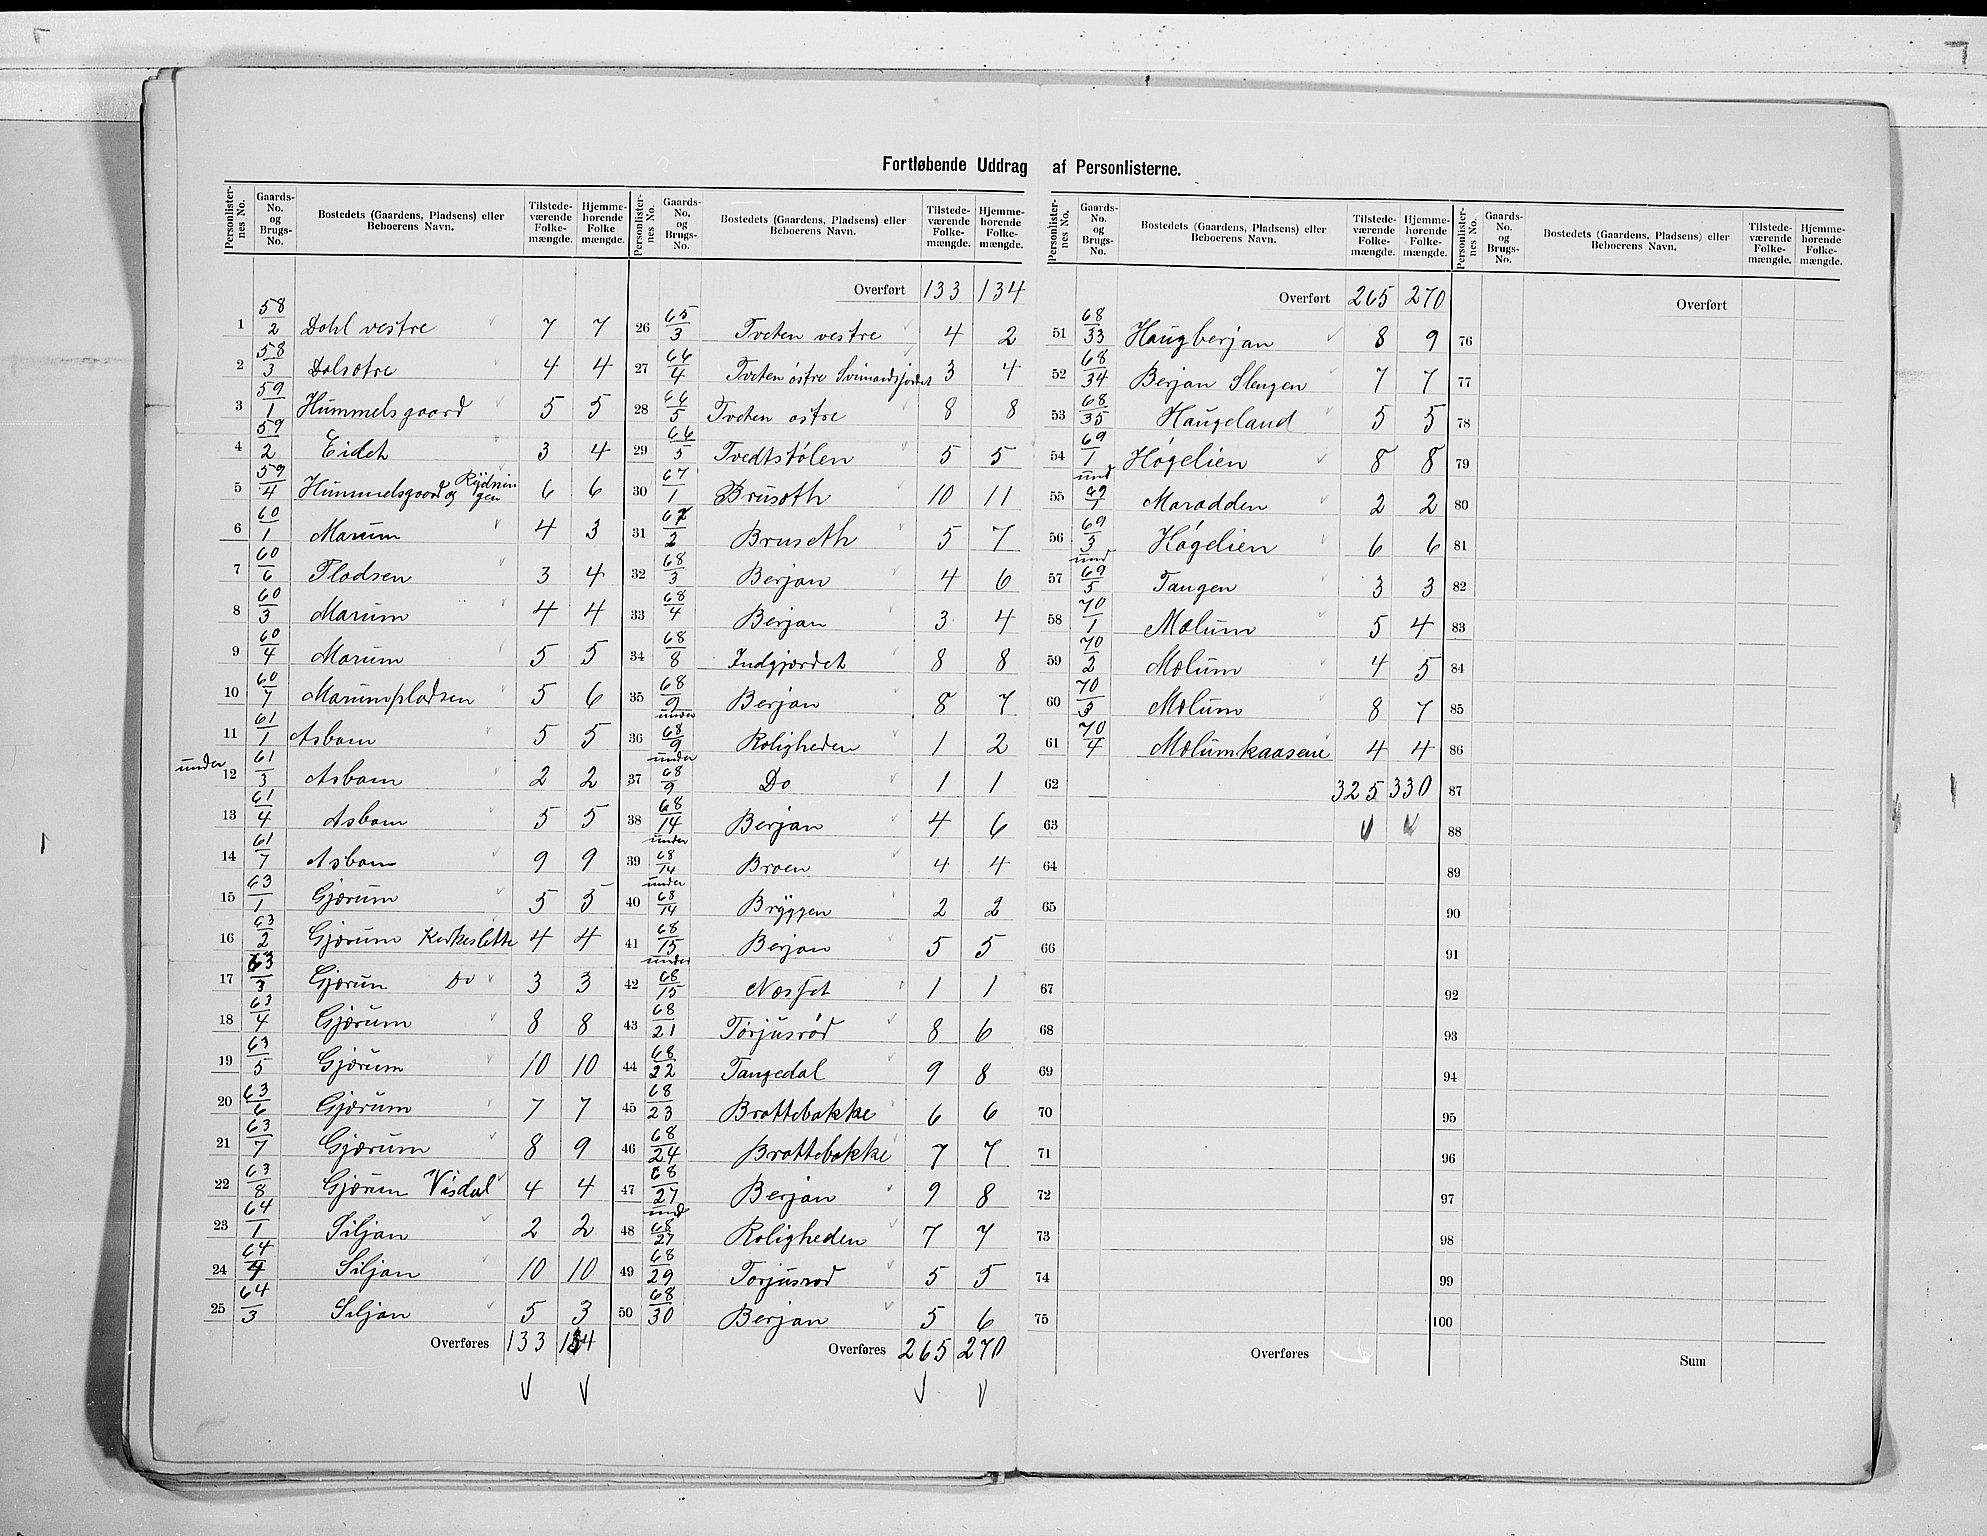 Fortløbende Uddrag af Personlisterne.
Personlister-nes No. | Gaards-No. og Brugs-No. | Bostedets (Gaardens, Pladsens) eller Beboerens Navn. | Tilstede-værende Folke-mængde. | Hjemme-hørende Folke mængde.
1 58/2 Dohl vestre 7 7
2 58/3 Dolsotre 4 4
3 59/1 Hummelsgaard 5 5
4 59/2 Eidet 3 4
5 59/4 Hummelsgaard og Rydnin gen 6 6
6 60/1 Marum 4 3
7 60/6 Pladsen 3 4
8 60/3 Marum 4 4
9 60/4 Marum 5 5
10 60/7 Marumpladsen 5 6
11 61/1 Asbom 5 5
under 12 61/3 Asbom 2 2
13 61/4 Asbom 5 5
14 61/7 Asbom 9 9
15 63/1 Gjørum 5 5
16 63/2 Gjørum Kirkeslette 4 4
17 63/3 Gjørum Do 3 3
18 63/4 Gjørum 8 8
19 63/5 Gjørum 10 10
20 63/6 Gjørum 7 7
21 63/7 Gjørum 8 9
22 63/8 Gjørum Visdal 4 4
23 64/1 Siljan 2 2
24 64/4 Siljan 10 10
25 64/3 Siljan 5 3
Overføres 133 134
Personlister-nes No. | Gaards-No. og Brugs-No. | Bostedets (Gaardens, Pladsens) eller Beboerens Navn. | Tilstede-værende Folke-mængde. | Hjemme-hørende Folke-mængde.
Overført 133 134
26 65/3 Tveten vestre 4 2
27 66/4 Tveten østre 3 4
28 66/5 Tveten østre 8 8
29 66/5 Tvedtstølen 5 5
30 67/1 Bruseth 10 11
31 67/2 Bruseth 5 7
32 68/3 Berjan 4 6
33 68/4 Berjan 3 4
34 68/8 Indgjærdet 8 8
35 68/9 Berjan 8 7
36 under 68/9 Roligheden 1 2
37 under 68/9 Do 1 1
38 68/14 Berjan 4 6
39 under 68/14 Broen 4 4
40 under 68/14 Bryggen 2 2
41 68/15 Berjan 5 5
42 under 68/15 Næsset 1 1
43 68/21 Torjusrød 8 6
44 68/22 Tangedal 9 8
45 68/23 Brattebakke 6 6
46 68/24 Brattebakke 7 7
47 68/27 Berjan 9 8
48 und 68/27 Roligheden 7 7
49 68/29 Torjusrød 5 5
50 68/30 Berjan 5 6
Overføres 265 270
Personlister-nes No. | Gaards-No. og Brugs-No. | Bostedets (Gaardens, Pladsens) eller Beboerens Navn. | Tilstede-værende Folke-mængde. | Hjemme-hørende Folke-mængde.
Overført 265 270
51 68/33 Haugberjan 8 9
52 68/34 Berjan Slengen 7 7
53 68/35 Haugeland 5 5
54 69/1 Høgelien 8 8
55 und 69/1 Maradden 2 2
56 69/5 Høgelien 6 6
57 und 69/5 Tangen 3 3
58 70/1 Mælum 5 4
59 70/2 Mælum 4 5
60 70/3 Mælum 8 7
61 70/4 Mælumkaasene 4 4
62 325 330
63
64
65
66
67
68
69
70
71
72
73
74
75
Overføres
Personlister-nes No. | Gaards-No. og Brugs-No. | Bostedets (Gaardens, Pladsens) eller Beboerens Navn. | Tilstede-værende Folke-mængde. | Hjemme-hørende Folke-mængde.
Overført
76
77
78
79
80
81
82
83
84
85
86
87
88
89
90
91
92
93
94
95
96
97
98
99
100
Sum